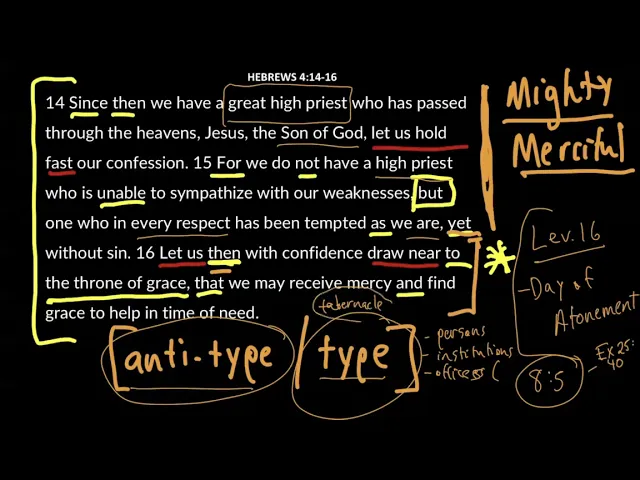 HEBREWS 4:14-16
14 Since then we have a great high priest who has passed
through the heavens, Jesus, the Son of God, let us hold
fast our confession. 15 For we do not have a high priest
who is unable to sympathize with our weaknesses, but
one who in every respect has been tempted as we are, yet
without sin. 16 Let us then with confidence draw near to
the throne of grace, that we may receive mercy and find
grace to help in time of need.
Mighty
Merciful
Lev. 16
- Day of
Atonement
8:5
- Ex 25:
40
tabernacle
[anti-type / type]
- persons
- institutions
- offices (